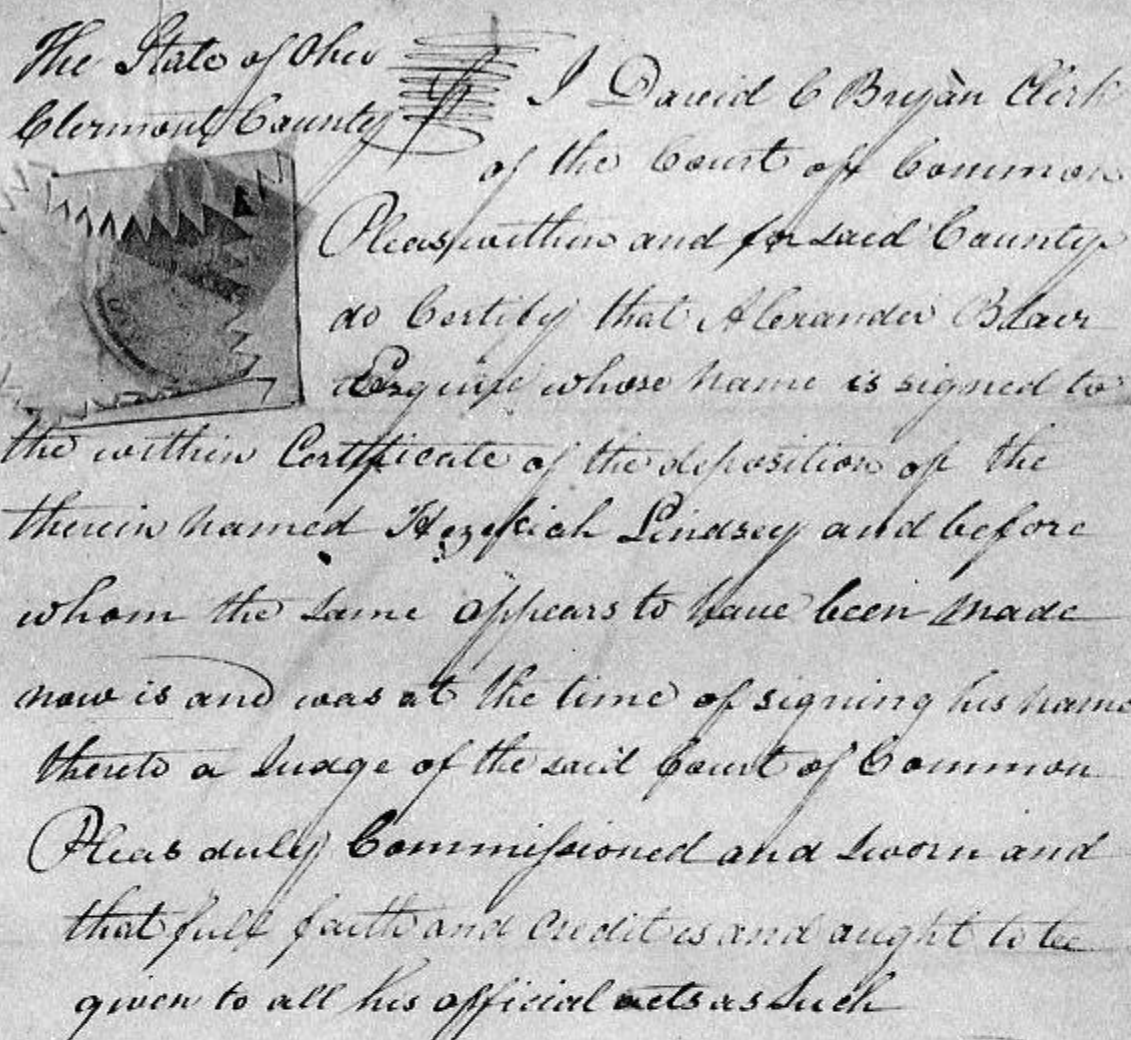 The State of Ohio
Clermont County
I David C Bryan Clerk
of the Court of Common
Pleas within and for said County
do Certify that Alexander Blair
Esquire whose name is signed to
the within Certificate of the deposition of the
therein named Hezekiah Lindsey and before
whom the same appears to have been made
now is and was at the time of signing his name
thereto a Judge of the said Court of Common
Pleas duly Commissioned and sworn and
that full faith and credit is and aught to be
given to all his official acts as Such